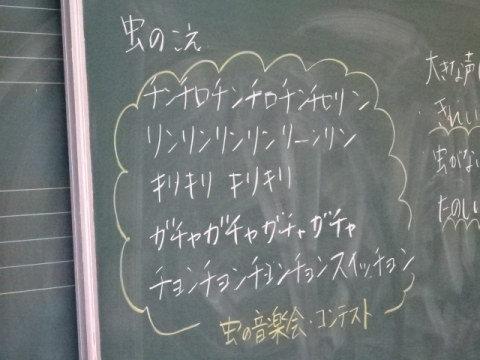 虫のこえ
チンチロチンチロチンチロリン
リンリンリンリンリーンリン
キリキリ キリキリ
ガチャガチャガチャガチャ
チョンチョンチョンチョンスイッチョン
虫の音楽会・コンテスト
大きな声
きれい
虫がな
たのしい